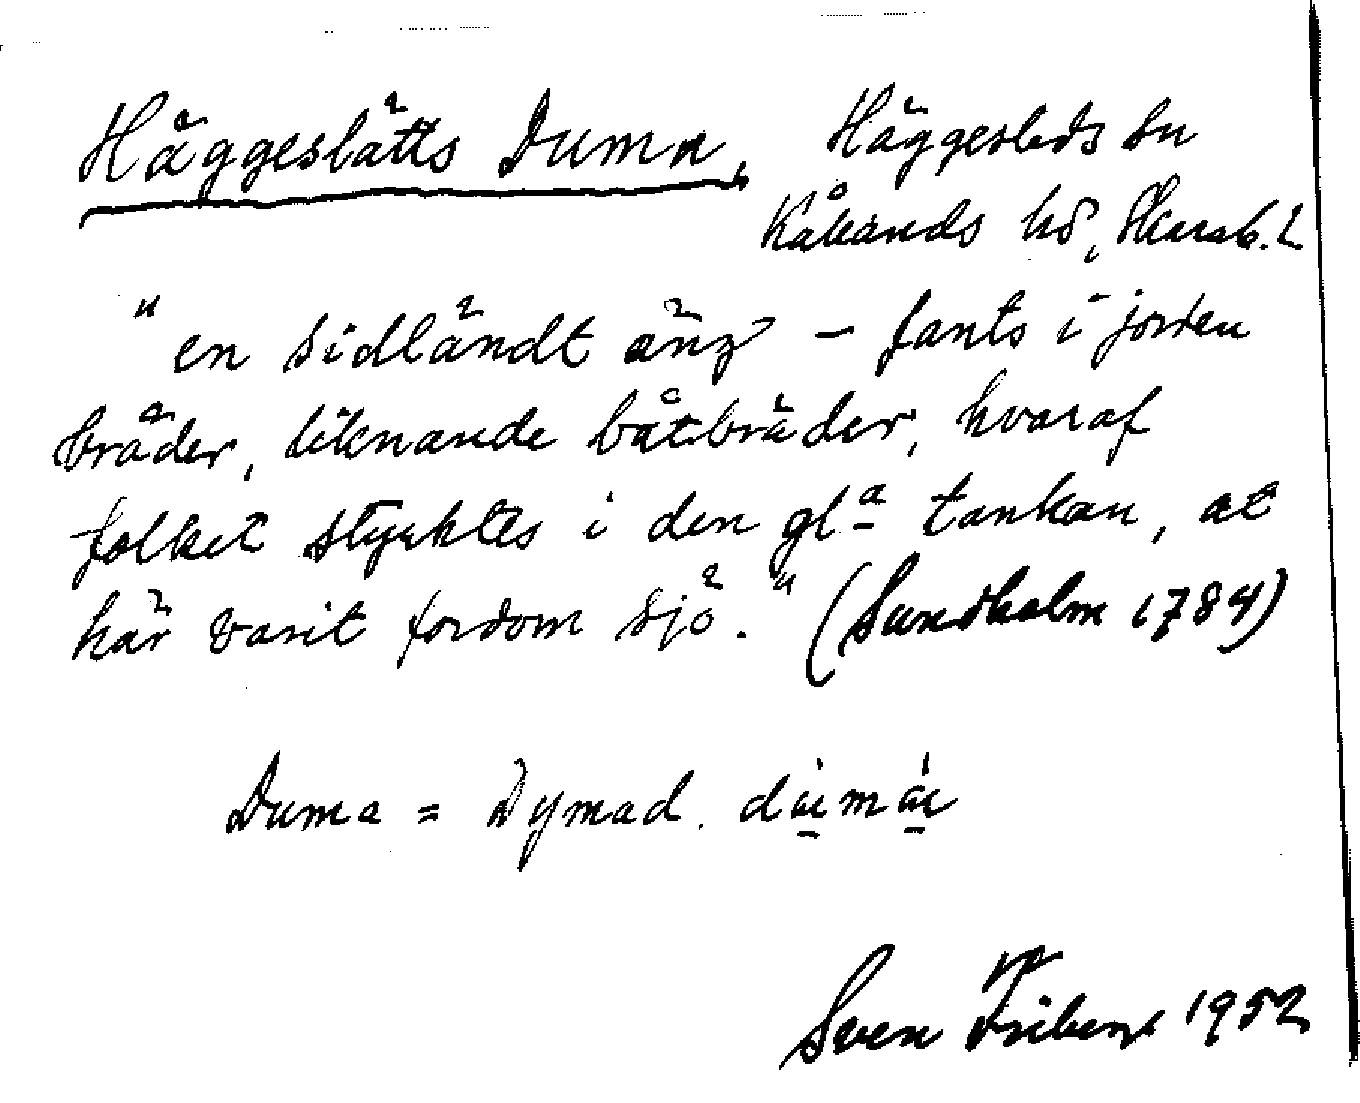 Häggeslätts Duma, Häggesleds sn
Kåkinds hd, Skarab. L
"en sidländt äng – fants i jorden
bräder, liknande båtbräder, hvaraf
folket styrktes i den gla tankan, at
här varit fordom sjö." (Sundholm 1784)
Duma = Dymad.
Sven Friberg 1952